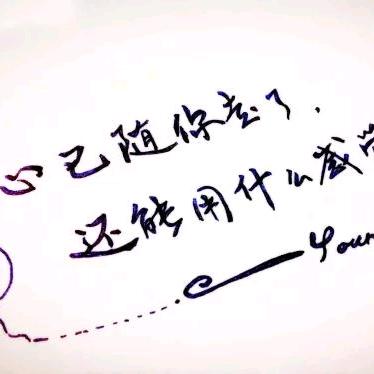 已随你走了.
还能用什么感
Your